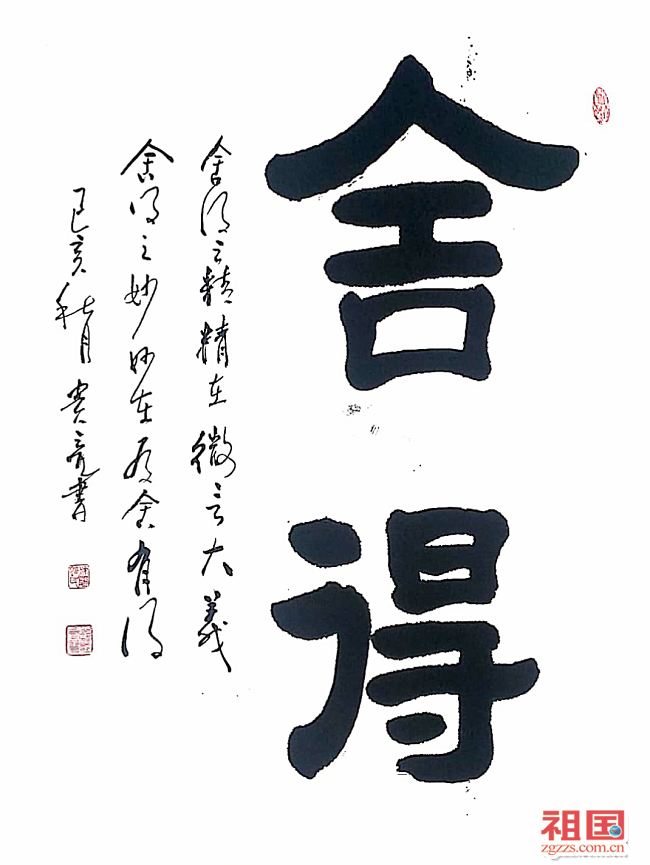 舍得
舍得之精精在微言大义
舍得之妙妙在有舍有得
己亥秋月贵亮书
祖国
zgzzs.com.cn